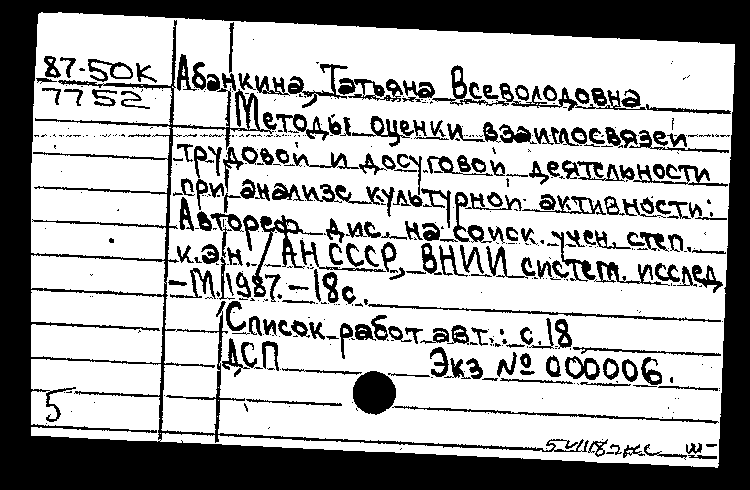 87-50К
7752
Абанкина, Татьяна Всеволодовна.
Методы оценки взаимосвязей
трудовой и досуговой деятельности
при анализе культурной активности:
Автореф. дис. на соиск. учен. степ.
к.э.н. / АН СССР, ВНИИ систем. исслед.
-М., 1987. - 18с.
Список работ авт.: с. 18
ДСП Экз № 000006.
5